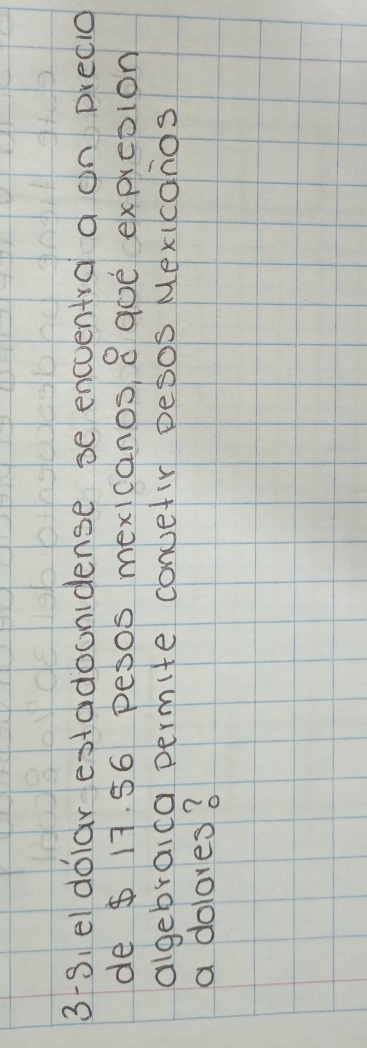 3-Si el dólar estadounidense se encuentra a un precio
de $ 17.56 pesos mexicanos, ¿ qué expresion
algebraica permite convetir pesos Mexicanos
a dolores?